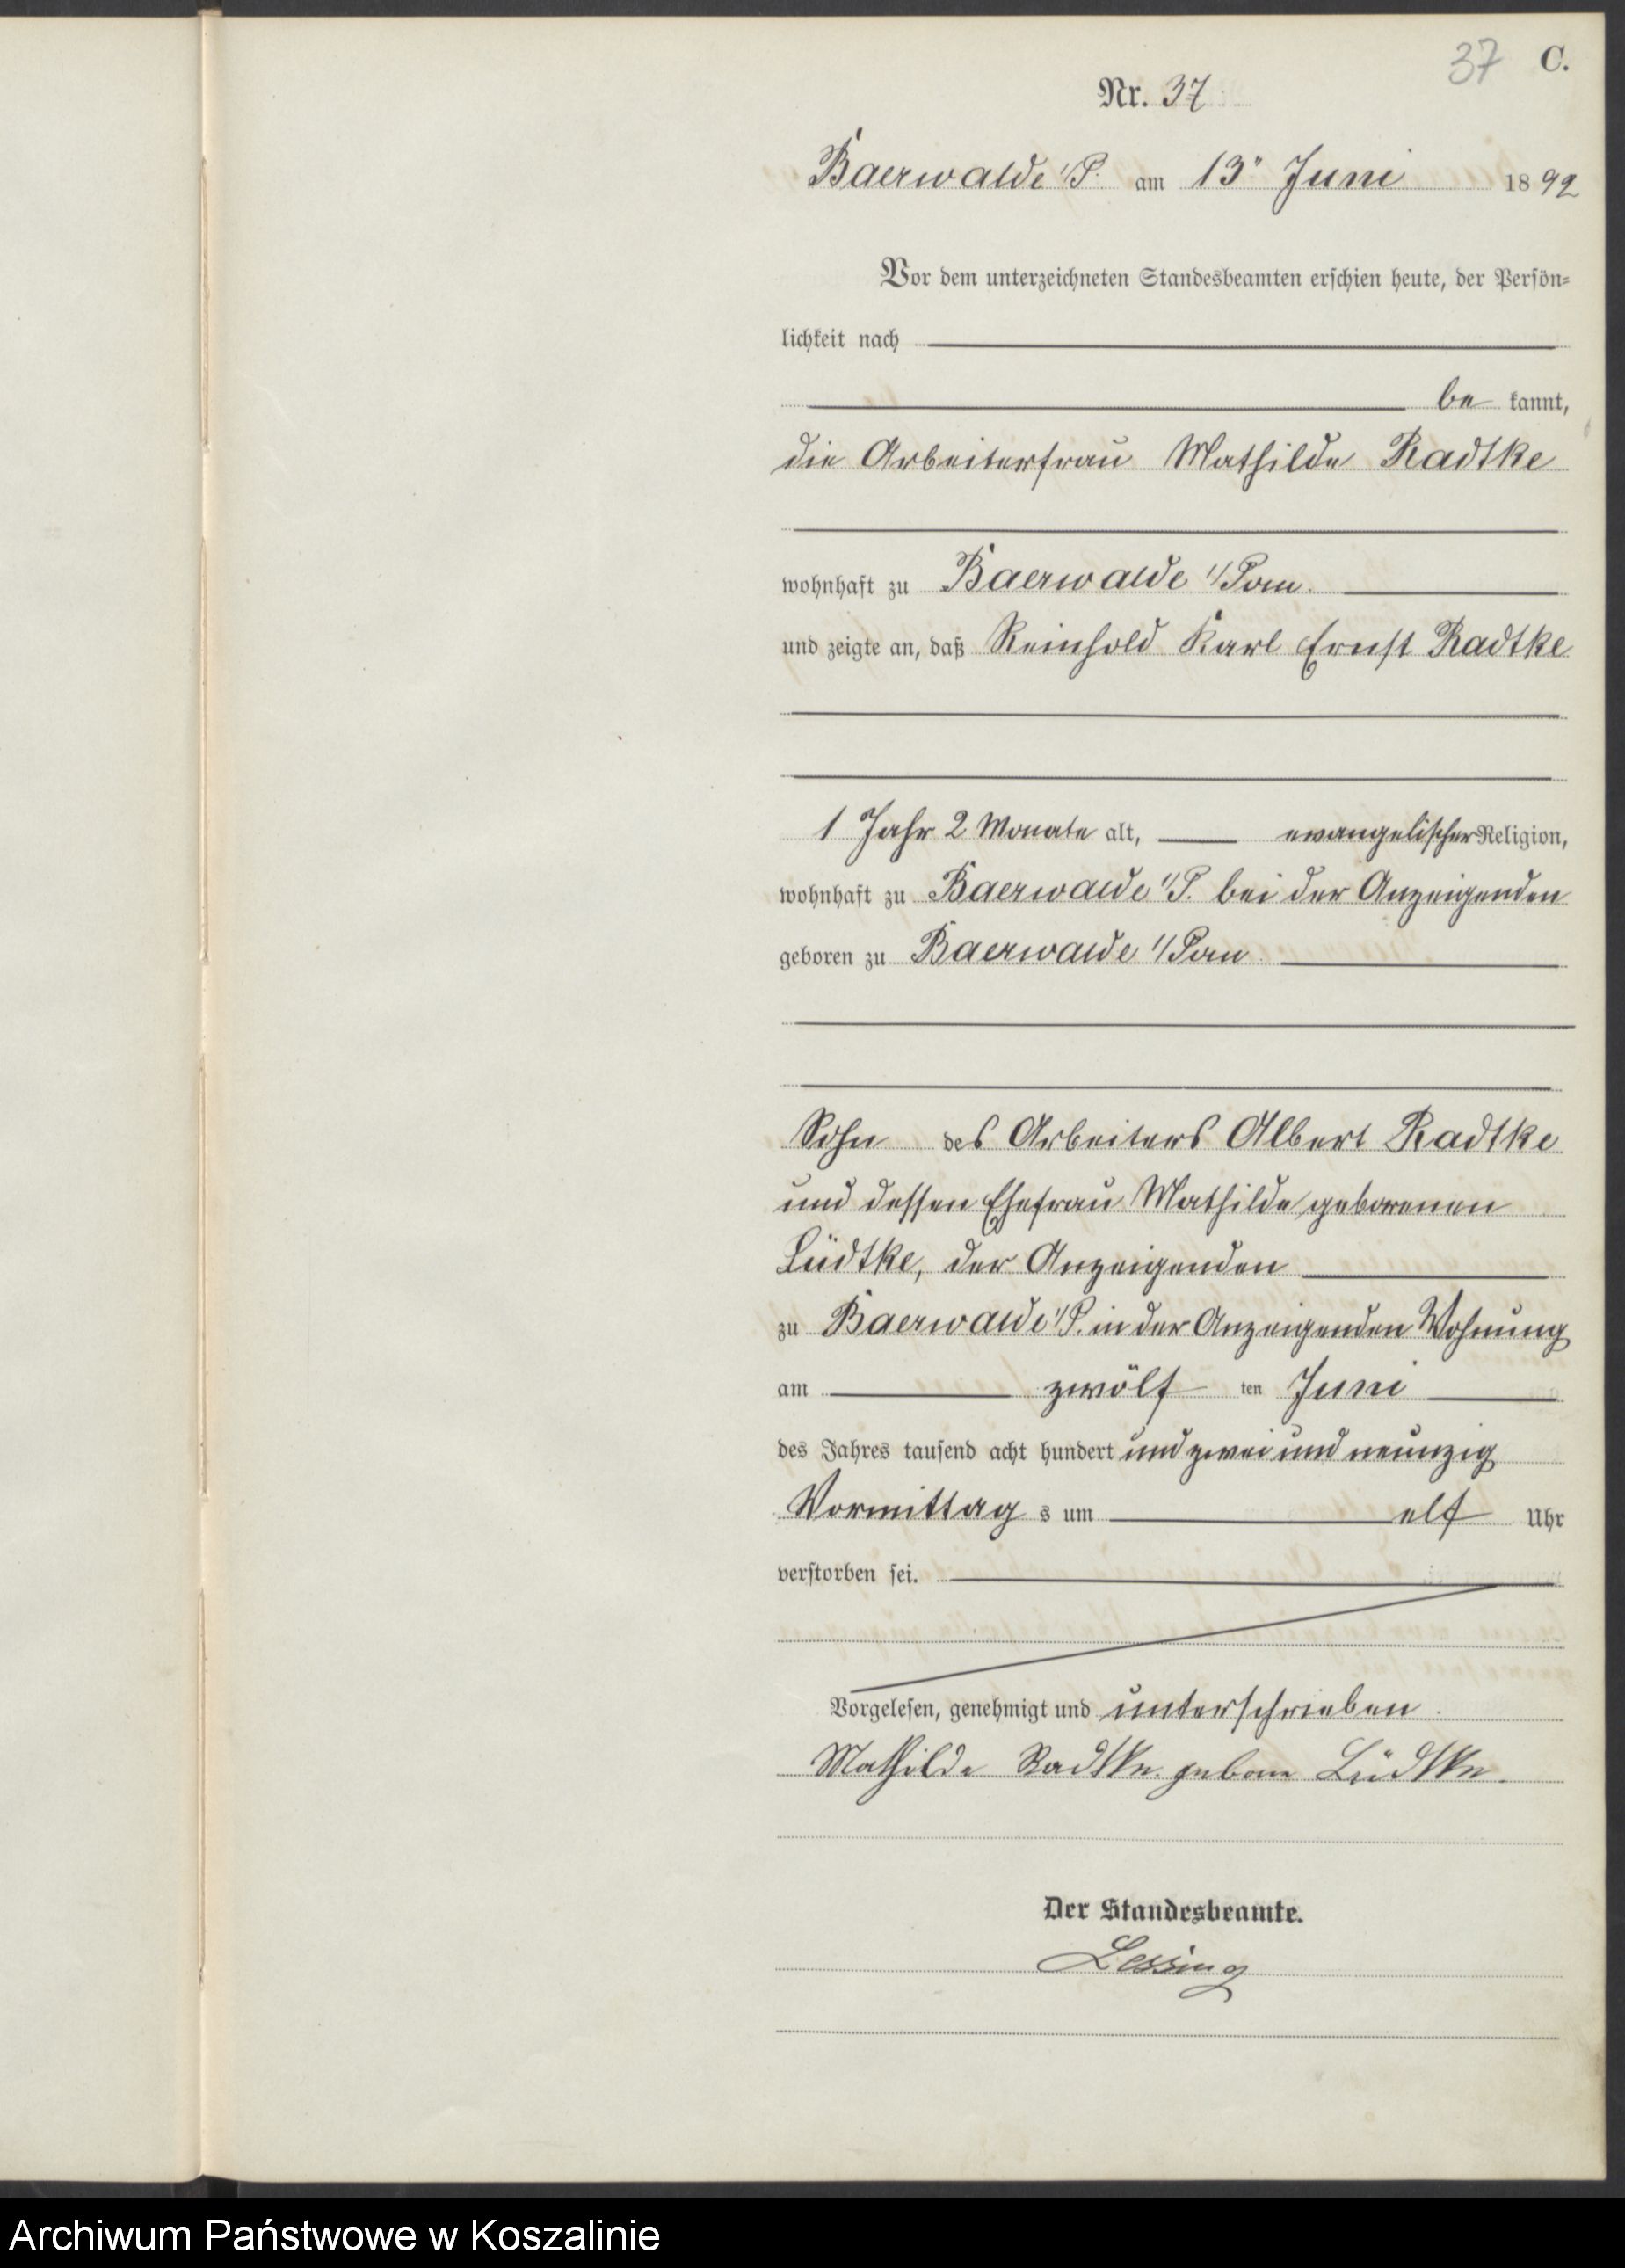 37 C.
Nr. 37
Baerwalde i/P. am 13" Juni 1892
Vor dem unterzeichneten Standesbeamten erschien heute, der Persön-
lichkeit nach
be kannt,
die Arbeiterfrau Mathilde Radtke
wohnhaft zu Baerwalde i/Pom.
und zeigte an, daß Reinhold Karl Ernst Radtke
1 Jahr 2 Monate alt, evangelischer Religion,
wohnhaft zu Baerwalde i/P. bei der Anzeigenden
geboren zu Baerwalde i/Pom
Sohn des Arbeiters Albert Radtke
und dessen Ehefrau Mathilde geborenen
Lüdtke, der Anzeigenden
zu Baerwalde i/P. in der Anzeigenden Wohnung
am zwölf ten Juni
des Jahres tausend acht hundert und zwei und neunzig
Vormittag s um elf Uhr
verstorben sei.
Vorgelesen, genehmigt und unterschrieben.
Mathilde Radtke geborn Lüdtke.
Der Standesbeamte.
Lessing
Archiwum Państwowe w Koszalinie